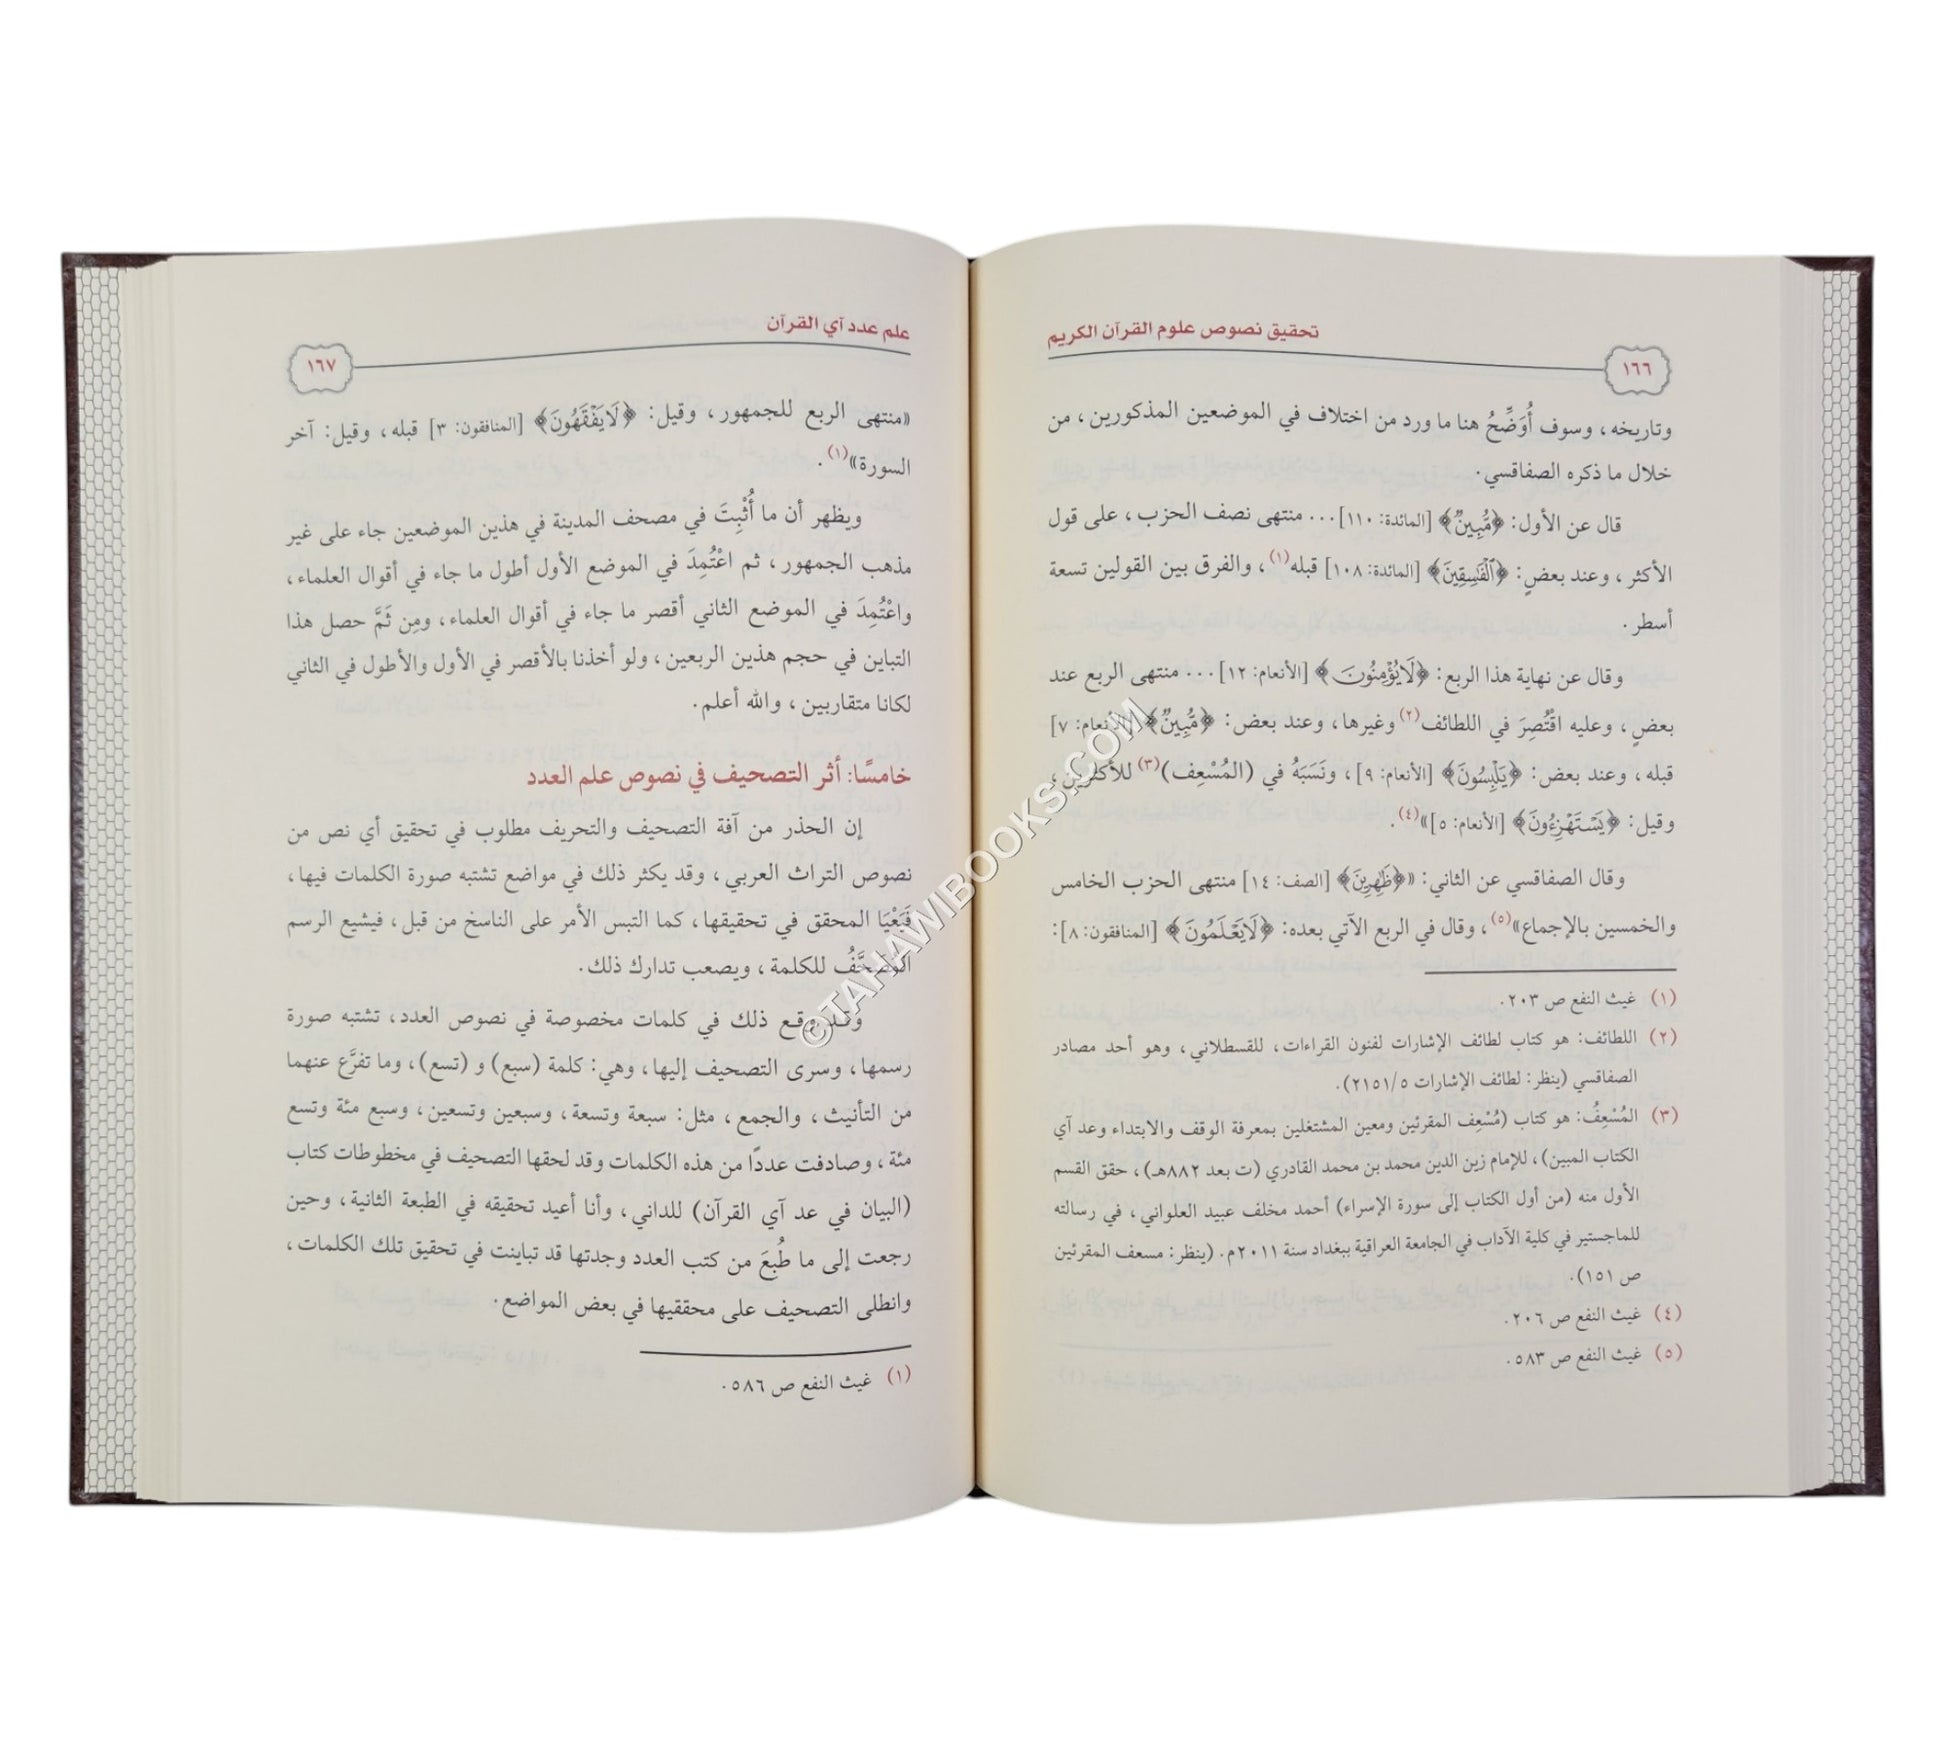 تحقيق نصوص علوم القرآن الكريم
١٦٦
وتاريخه، وسوف أُوَضِّحُ هنا ما ورد من اختلاف في الموضعين المذكورين، من
خلال ما ذكره الصفاقسي.
قال عن الأول: ﴿مُّبِينٞ﴾ [المائدة: ١١٠]... منتهى نصف الحزب، على قول
الأكثر، وعند بعضٍ: ﴿ٱلۡفَٰسِقِينَ﴾ [المائدة: ١٠٨] قبله(١)، والفرق بين القولين تسعة
أسطر.
وقال عن نهاية هذا الربع: ﴿لَا يُؤۡمِنُونَ﴾ [الأنعام: ١٢]... منتهى الربع عند
بعضٍ، وعليه اقْتُصِرَ في اللطائف(٢) وغيرها، وعند بعض: ﴿مُّبِينٞ﴾ [الأنعام: ٧]
قبله، وعند بعض: ﴿يَلۡبِسُونَ﴾ [الأنعام: ٩]، ونَسَبَهُ في (المُسْعِف)(٣) للأكثرين،
وقيل: ﴿يَسۡتَهۡزِءُونَ﴾ [الأنعام: ٥]»(٤).
وقال الصفاقسي عن الثاني: «﴿ظَٰهِرِينَ﴾ [الصف: ١٤] منتهى الحزب الخامس
والخمسين بالإجماع»(٥)، وقال في الربع الآتي بعده: ﴿لَا يَعۡلَمُونَ﴾ [المنافقون: ٨]:
(١) غيث النفع ص ٢٠٣.
(٢) اللطائف: هو كتاب لطائف الإشارات لفنون القراءات، للقسطلاني، وهو أحد مصادر
الصفاقسي (ينظر: لطائف الإشارات ٥/ ٢١٥١).
(٣) المُسْعِفُ: هو كتاب (مُسْعِف المقرئين ومعين المشتغلين بمعرفة الوقف والابتداء وعد آي
الكتاب المبين)، للإمام زين الدين محمد بن محمد القادري (ت بعد ٨٨٢هـ)، حقق القسم
الأول منه (من أول الكتاب إلى سورة الإسراء) أحمد مخلف عبيد العلواني، في رسالته
للماجستير في كلية الآداب في الجامعة العراقية ببغداد سنة ٢٠١١م. (ينظر: مسعف المقرئين
ص ١٥١).
(٤) غيث النفع ص ٢٠٦.
(٥) غيث النفع ص ٥٨٣.
علم عدد آي القرآن
١٦٧
«منتهى الربع للجمهور، وقيل: ﴿لَا يَفۡقَهُونَ﴾ [المنافقون: ٣] قبله، وقيل: آخر
السورة»(١).
ويظهر أن ما أُثْبِتَ في مصحف المدينة في هذين الموضعين جاء على غير
مذهب الجمهور، ثم اعْتُمِدَ في الموضع الأول أطول ما جاء في أقوال العلماء،
واعْتُمِدَ في الموضع الثاني أقصر ما جاء في أقوال العلماء، ومِن ثَمَّ حصل هذا
التباين في حجم هذين الربعين، ولو أخذنا بالأقصر في الأول والأطول في الثاني
لكانا متقاربين، والله أعلم.
خامسًا: أثر التصحيف في نصوص علم العدد
إن الحذر من آفة التصحيف والتحريف مطلوب في تحقيق أي نص من
نصوص التراث العربي، وقد يكثر ذلك في مواضع تشتبه صورة الكلمات فيها،
فَيَعْيَا المحقق في تحقيقها، كما التبس الأمر على الناسخ من قبل، فيشيع الرسم
المُصَحَّفُ للكلمة، ويصعب تدارك ذلك.
وقد وقع ذلك في كلمات مخصوصة في نصوص العدد، تشتبه صورة
رسمها، وسرى التصحيف إليها، وهي: كلمة (سبع) و (تسع)، وما تفرَّع عنهما
من التأنيث، والجمع، مثل: سبعة وتسعة، وسبعين وتسعين، وسبع مئة وتسع
مئة، وصادفت عددًا من هذه الكلمات وقد لحقها التصحيف في مخطوطات كتاب
(البيان في عد آي القرآن) للداني، وأنا أعيد تحقيقه في الطبعة الثانية، وحين
رجعت إلى ما طُبِعَ من كتب العدد وجدتها قد تباينت في تحقيق تلك الكلمات،
وانطلى التصحيف على محققيها في بعض المواضع.
(١) غيث النفع ص ٥٨٦.
©TAHAWIBOOKS.COM